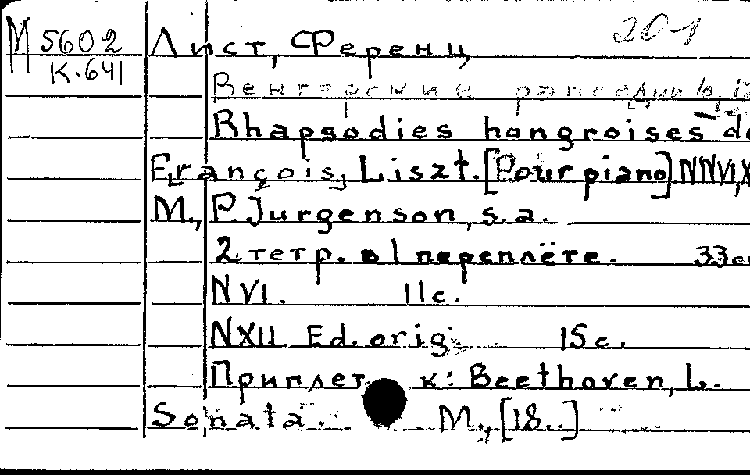 201
М 5602 Лист, Ференц
К.641
Венгерские рапсодии
Rhapsodies hongroises de
François Liszt. [Pour piano] NNVI, X
M., P Jurgenson, s.a.
2 тетр. в 1 переплёте. 33
NVI. 11 с.
NXII Ed. orig. 15 с.
Приплет к: Beethoven, L.
Sonata. M., [18..]